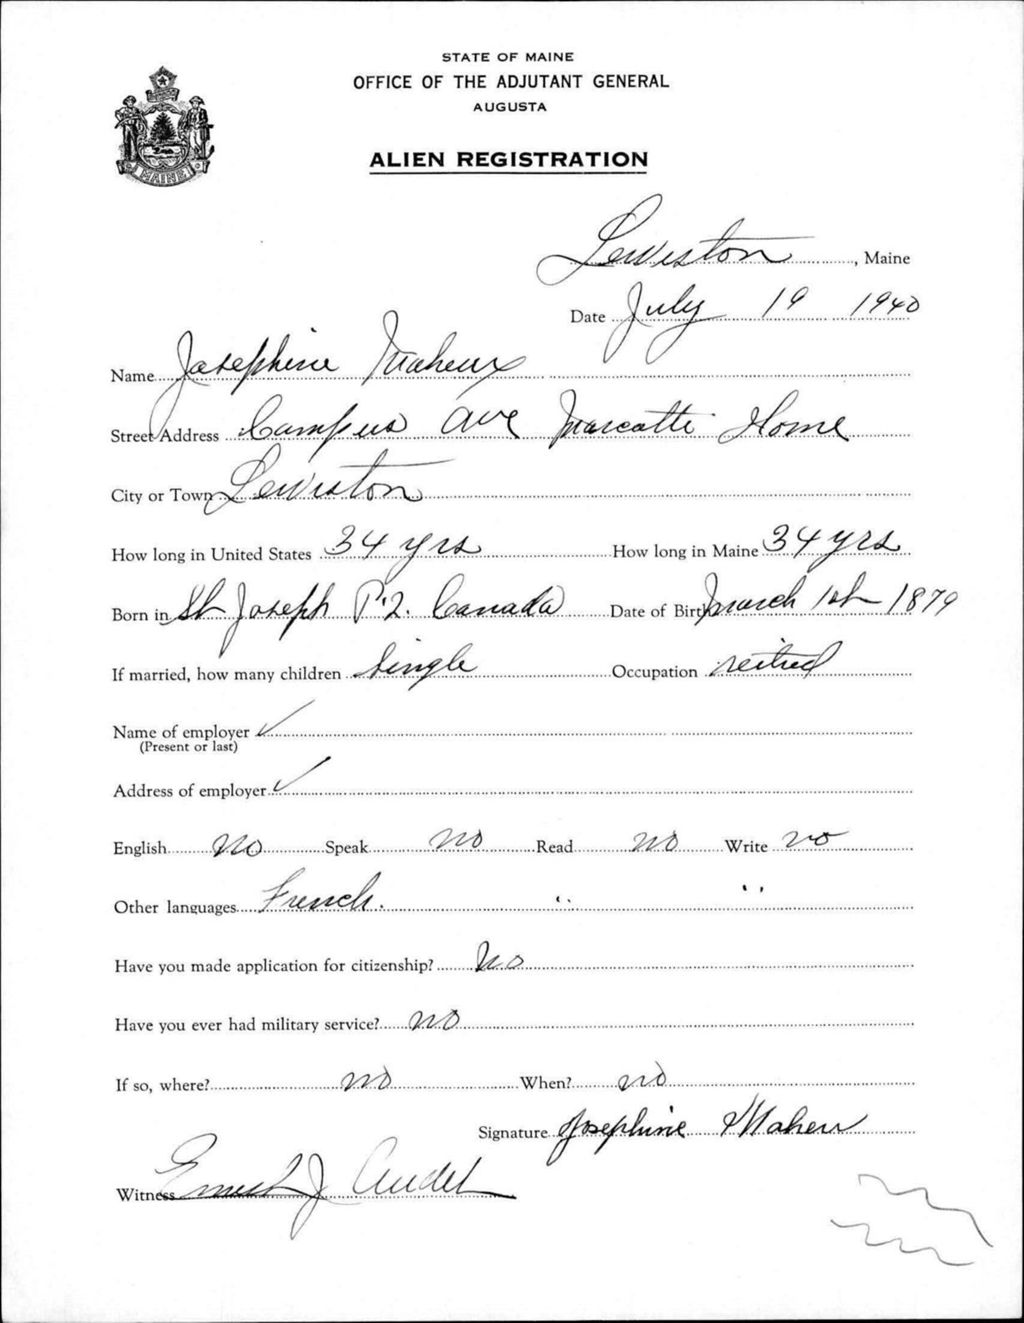 STATE OF MAINE
OFFICE OF THE ADJUTANT GENERAL
AUGUSTA
ALIEN REGISTRATION
MAINE
Lewiston, Maine
Date July 19 1940
Name Josephine Maheux
Street Address Campus Ave Marcotte Home
City or Town Lewiston
How long in United States 34 yrs How long in Maine 34 yrs
Born in St Joseph P.Q. Canada Date of Birth March 1st 1879
If married, how many children Single Occupation retired
Name of employer ✓
(Present or last)
Address of employer ✓
English No Speak no Read no Write no
Other languages French. " "
Have you made application for citizenship? No
Have you ever had military service? no
If so, where? no When? no
Signature Josephine Maheu
Witness Ernest J Audet